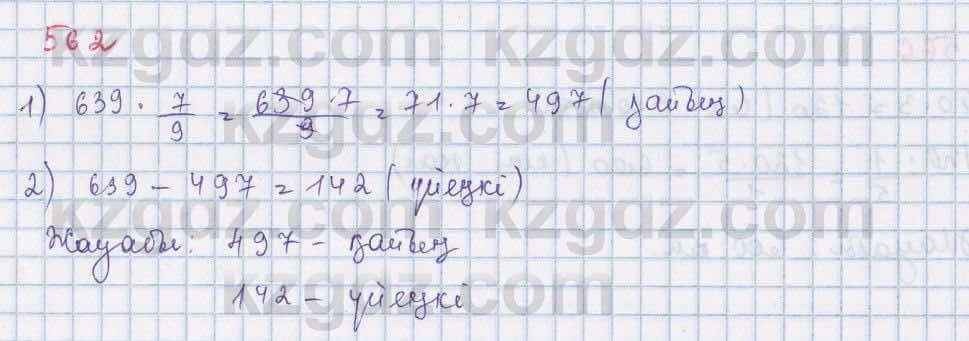 562
1) 639 · 7/9 = 639 · 7/9 = 71 · 7 = 497 (қайың)
2) 639 – 497 = 142 (үйеңкі)
Жауабы: 497 – қайың
142 – үйеңкі
kzgdz.com kzgdz.com
kzgdz.com kzgdz.com
kzgdz.com kzgdz.com
kzgdz.com kzgdz.com